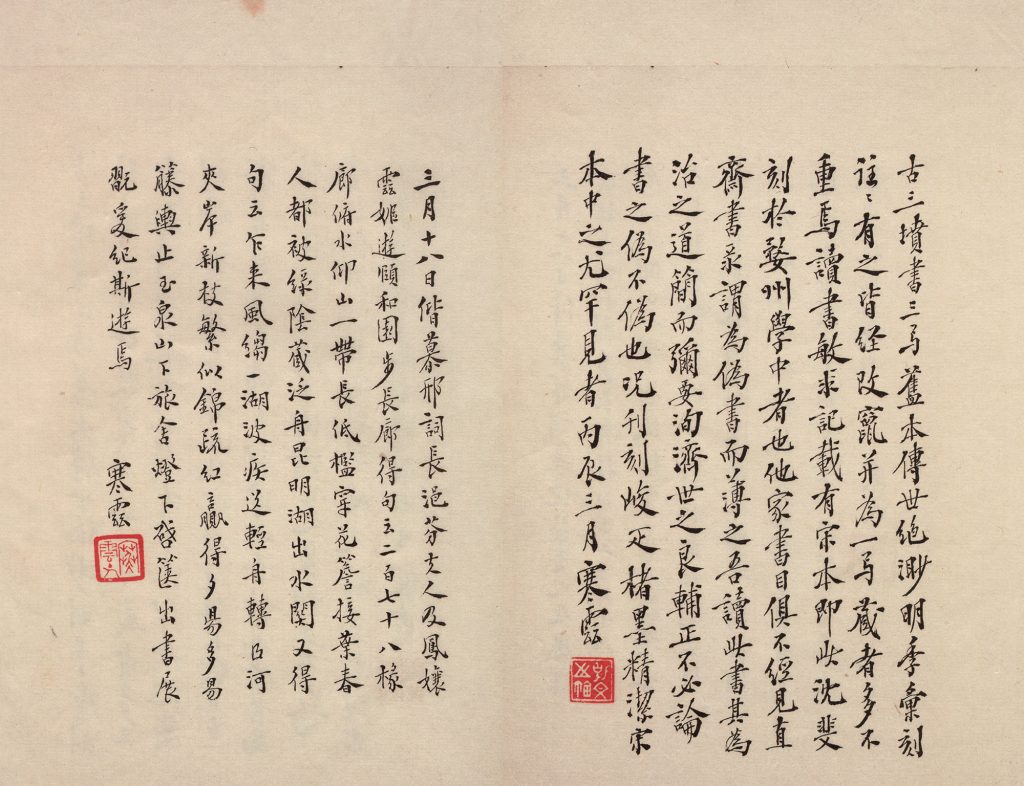 古三墳書三弓舊本傳世絶尠明季彙刻
往〻有之皆経改竄并為一弓蔵者多不
重焉讀書敏求記載有宋本即此沈斐
刻於婺州學中者也他家書目俱不經見直
齋書录謂為偽書而薄之吾讀此書其為
治之道簡而彌要洵濟世之良輔正不必論
書之偽不偽也況刊刻峻疋楮墨精潔宋
本中之尤罕見者丙辰三月寒雲
三月十八日偕慕邢詞長浥芬夫人及鳳孃
雲姬遊頤和園步長廊得句云二百七十八椽
廊俯水仰山一帶長低檻穿花簷接葉春
人都被緑陰蔵泛舟昆明湖出水関又得
句云乍来風縐一湖波疾送輕舟轉臼河
夾岸新枝繁似錦疏紅贏得夕陽多易
籐輿止玉泉山下旅舍燈下啓篋出書展
翫爰紀斯遊焉 寒雲